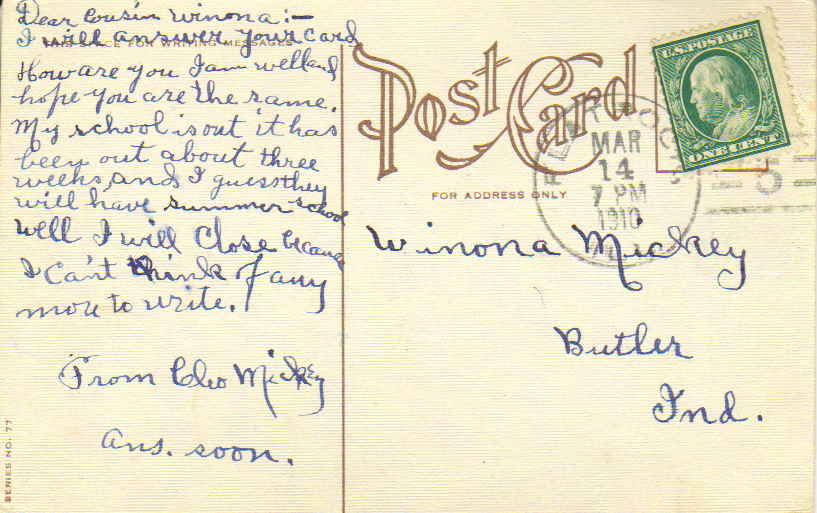 Dear Cousin Winona:—
I will answer your card
THIS SPACE FOR WRITING MESSAGES
How are you I am well and
hope you are the same.
My school is out it has
been out about three
weeks, and I guess they
will have summer school
Well I will Close because
I Can't think of any
more to write.
From Cleo Mickey
ans. soon.
SERIES NO. 77
Post Card
FOR ADDRESS ONLY
U.S. POSTAGE
ONE CENT
MAR
14
7 PM
1910
5
Winona Mickey
Butler
Ind.